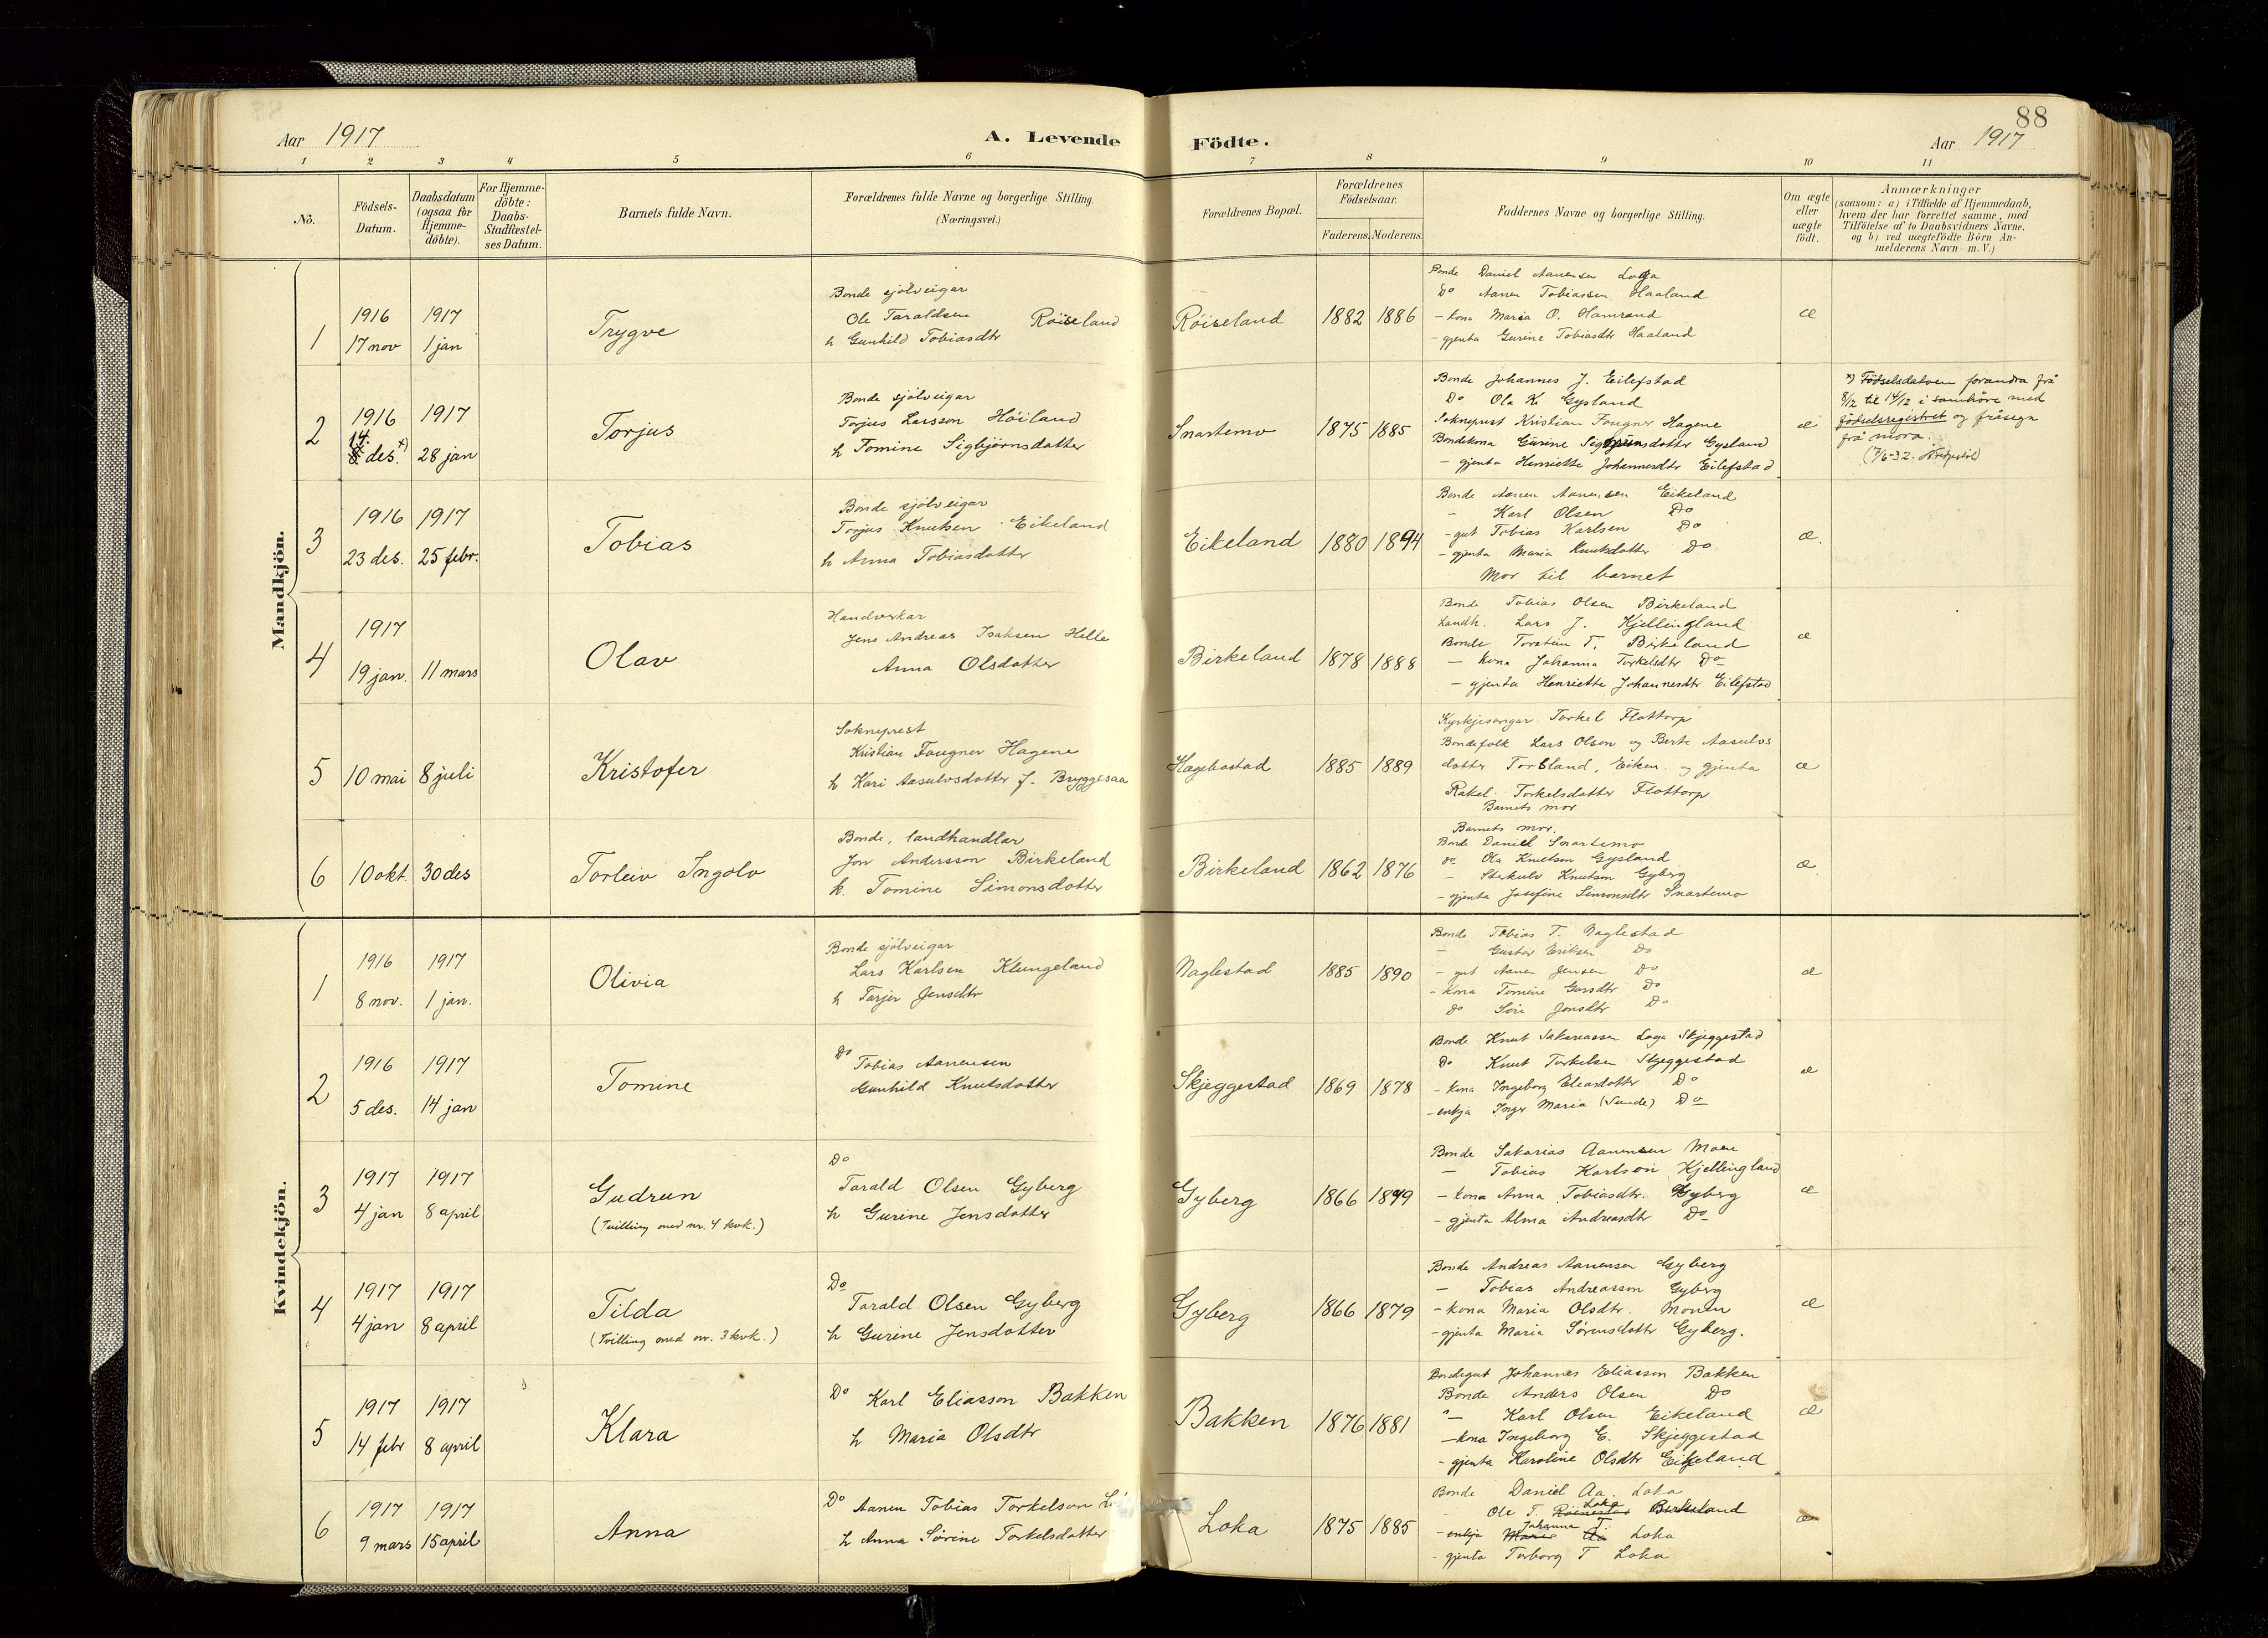 88
Aar 1917 A. Levende Födte. Aar 1917
1 2 3 4 5 6 7 8 9 10 11
No.
Födsels-
Datum.
Daabsdatum
(ogsaa for
Hjemme-
döbte).
For Hjemme-
döbte:
Daabs-
Stadfæstel-
ses Datum.
Barnets fulde Navn.
Forældrenes fulde Navne og borgerlige Stilling.
(Næringsvei.)
Forældrenes Bopæl.
Forældrenes
Födselsaar.
Faderens. Moderens.
Faddernes Navne og borgerlige Stilling.
Om ægte
eller
uægte
födt.
Anmærkninger
(saasom: a) i Tilfælde af Hjemmedaab,
hvem der har forrettet samme, med
Tilföielse af to Daabsvidners Navne.
og b) ved uægtefödte Börn An-
melderens Navn m. V.)
Mandkjön.
1
1916
17 nov
1917
1 jan
Trygve
Bonde sjølveigar
Ole Taraldsen Røiseland
h Gunhild Tobiasdtr
Røiseland
1882 1886
Bonde Daniel Aanensen Loga
Do Aanen Tobiassen Haaland
- kona Maria O. Hamrand
- gjenta Gurine Tobiasdtr Haaland
æ
2
1916
14.
8 des. x)
1917
28 jan
Torjus
Bonde sjølveigar
Torjus Larsson Høiland
h Tomine Sigbjørnsdatter
Snartemo
1875 1885
Bonde Johannes J. Eilefstad
Do Ola K. Gysland
Sokneprest Kristian Fougner Hagene
Bondekona Gurine Sigbjørnsdotter Gysland
- gjenta Henriette Johannesdtr Eilefstad
æ
x) Fødselsdatoen forandra frå
8/12 til 14/12 i samhøve med
fødselsregistret og fråsegn
frå mora.
3
1916
23 des.
1917
25 febr.
Tobias
Bonde sjølveigar
Torjus Knutsen Eikeland
h Anna Tobiasdotter
Eikeland
1880 1894
Bonde Aanen Aanensen Eikeland
- Karl Olsen Do
- gut Tobias Karlsen Do
- gjenta Maria Knutsdotter Do
Mor til barnet
æ.
4
1917
19 jan.
11 mars
Olav
Handverkar
Jens Andreas Isaksen Helle
Anna Olsdotter
Birkeland
1878 1888
Bonde Tobias Olsen Birkeland
Landh. Lars J. Kjellingland
Bonde Torstein T. Birkeland
- kona Johanna Torkelsdtr Do
- gjenta Henriette Johannesdtr Eilefstad
æ
5
10 mai
8 juli
Kristofer
Sokneprest
Kristian Fougner Hagene
h Kari Aasulvsdotter f. Bryggesaa
Hægebostad
1885 1889
Kyrkjesongar Torkel Flottorp
Bondefolk Lars Olson og Berte Aasulvs
dotter Torsland, Eiken. og gjenta
Rakel Torkelsdotter Flottorp
Barnets mor
æ
6
10 okt.
30 des
Torleiv Ingolv
Bonde, landhandlar
Jon Andersson Birkeland
h. Tomine Simonsdotter
Birkeland
1862 1876
Barnets mor.
Bonde Daniel Snartemo
do Ola Knutson Gysland
- Sterkulv Knutson Gyberg
- gjenta Josefine Simonsdtr Snartemo
æ.
Kvindekjön.
1
1916
8 nov.
1917
1 jan.
Olivia
Bonde sjølveigar
Lars Karlsen Klungeland
h Tarjer Jensdtr
Naglestad
1885 1890
Bonde Tobias T. Naglestad
- Gustav Eriksen Do
- gut Aanen Jensen Do
- kona Tomine Do
Do Siri Jonsdtr Do
æ
2
1916
5 des.
1917
14 jan
Tomine
Do
Tobias Aanensen
Gunhild Knutsdotter
Skjeggestad
1869 1878
Bonde Knut Sakariassen Loga Skjeggestad
Do Knut Torkelsen Skjeggestad
- kona Ingeborg Eliasdotter Do
- enkja Inger Maria (Sande) Do
æ
3
1917
4 jan
1917
8 april
Gudrun
(Tvilling med nr. 4 kvk.)
Do
Tarald Olsen Gyberg
h Gurine Jensdotter
Gyberg
1866 1879
Bonde Sakarias Aanensen Moen
- Tobias Karlson Kjellingland
- kona Anna Tobiasdtr. Gyberg
- gjenta Alma Andreasdtr Do
æ
4
1917
4 jan
1917
8 april
Tilda
(Tvilling med nr. 3 kvk.)
Do
Tarald Olsen Gyberg
h Gurine Jensdotter
Gyberg
1866 1879
Bonde Andreas Aanensen Gyberg
- Tobias Andreasson Gyberg
- kona Maria Olsdtr. Monen
- gjenta Maria Sørensdotter Gyberg.
æ
5
1917
14 febr
1917
8 april
Klara
Do Karl Eliasson Bakken
h Maria Olsdtr
Bakken
1876 1881
Bondegut Johannes Eliasson Bakken
Bonde Anders Olsen Do
"- Karl Olsen Eikeland
- kona Ingeborg E. Skjeggestad
- gjenta Karoline Olsdtr Eikeland
æ
6
1917
9 mars
1917
15 april
Anna
Do Aanen Tobias Torkelson
h Anna Sørine Torkelsdotter
Loka
1875 1885
Bonde Daniel Aa. Loka
- Ole T. Loka Birkeland
- enkja Maria Johanne T. Loka
- gjenta Torborg T Loka
æ